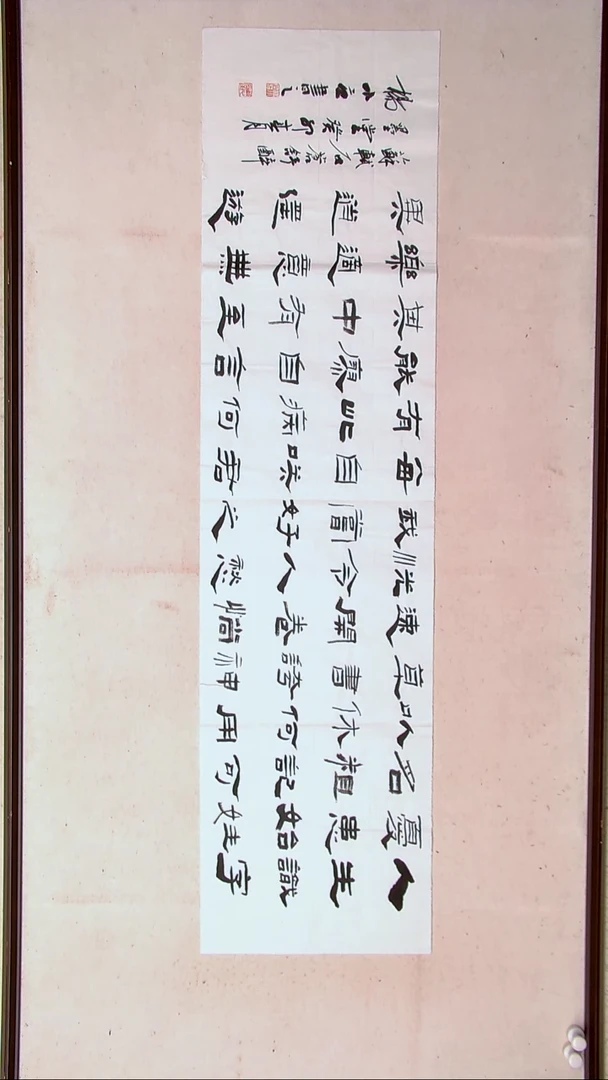 人生識字
憂患始姓
名粗記可
以休何用
草書誇神
速開卷惝
怳令人愁
我嘗好之
每自咲君
有此病何
能瘳自言
其中有至
樂適意無
異逍遥遊
蘇軾石蒼舒醉
墨堂癸卯春月
楊小書之